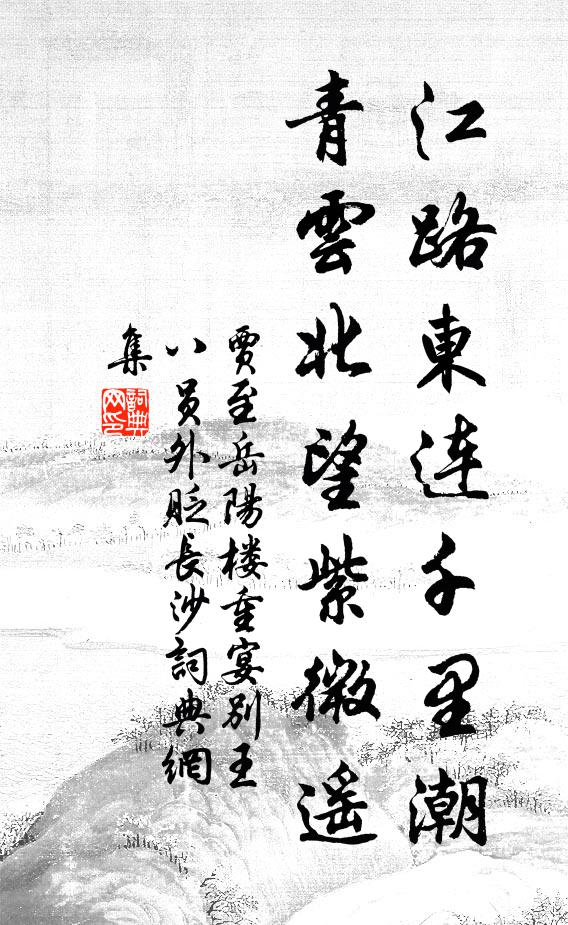 江路東連千里潮
青雲北望紫微遥
賈至岳陽楼重宴别王
八員外貶長沙詞典網
集
詞典
网印